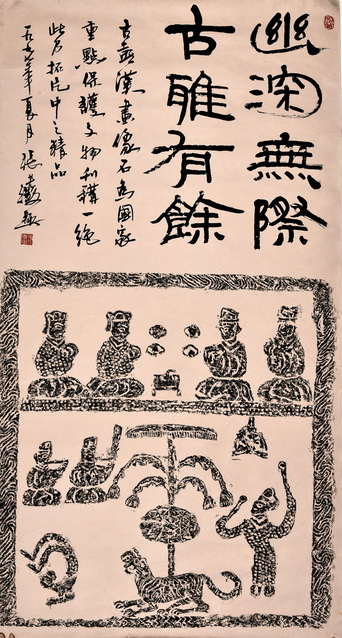 幽深無際
古雅有餘
古漢畫像石為國家
重點保護文物稱一絕
此乃拓片中之精品
一九九年夏月張題